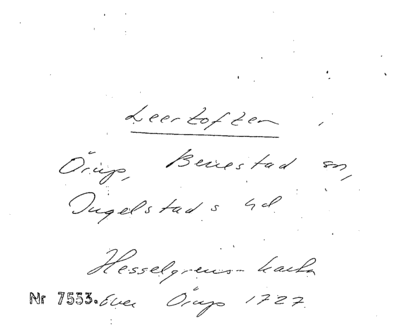 Leertoften
Örup, Benestad sn,
Ingelstads hd
Hesselgrens karta
Nr 7553. över Örup 1727